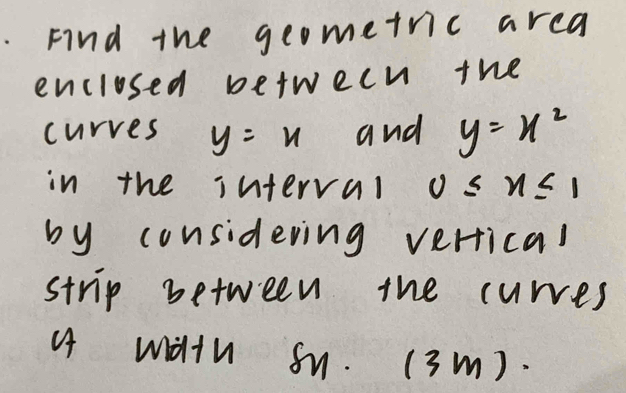 . Find the geometric area
enclosed between the
curves y = x and y = x²
in the interval 0 ≤ x ≤ 1
by considering vertical
strip between the curves
of width δx. (3m).